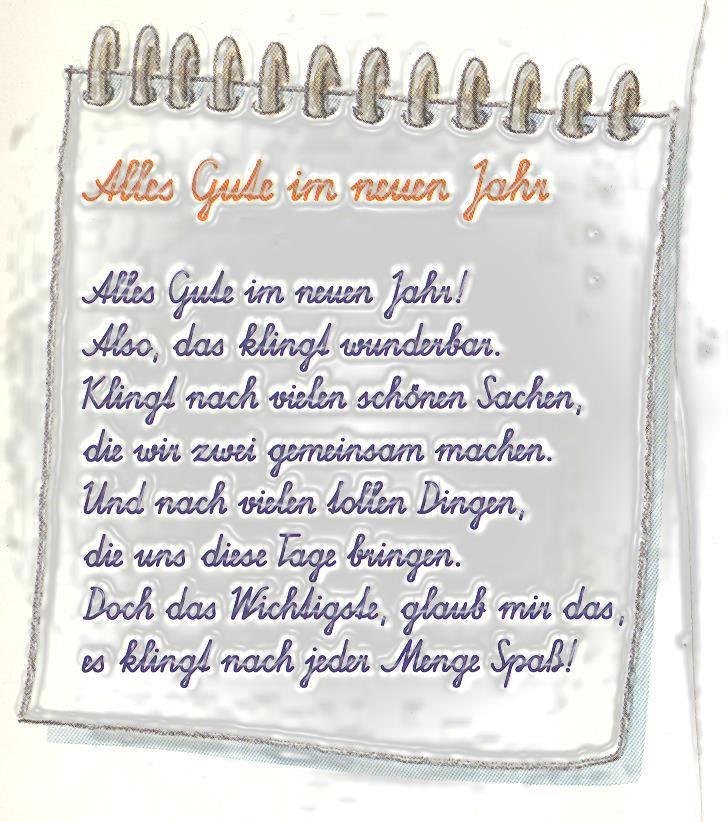 Alles Gute im neuen Jahr
Alles Gute im neuen Jahr!
Also, das klingt wunderbar.
Klingt nach vielen schönen Sachen,
die wir zwei gemeinsam machen.
Und nach vielen tollen Dingen,
die uns diese Tage bringen.
Doch das Wichtigste, glaub mir das,
es klingt nach jeder Menge Spaß!